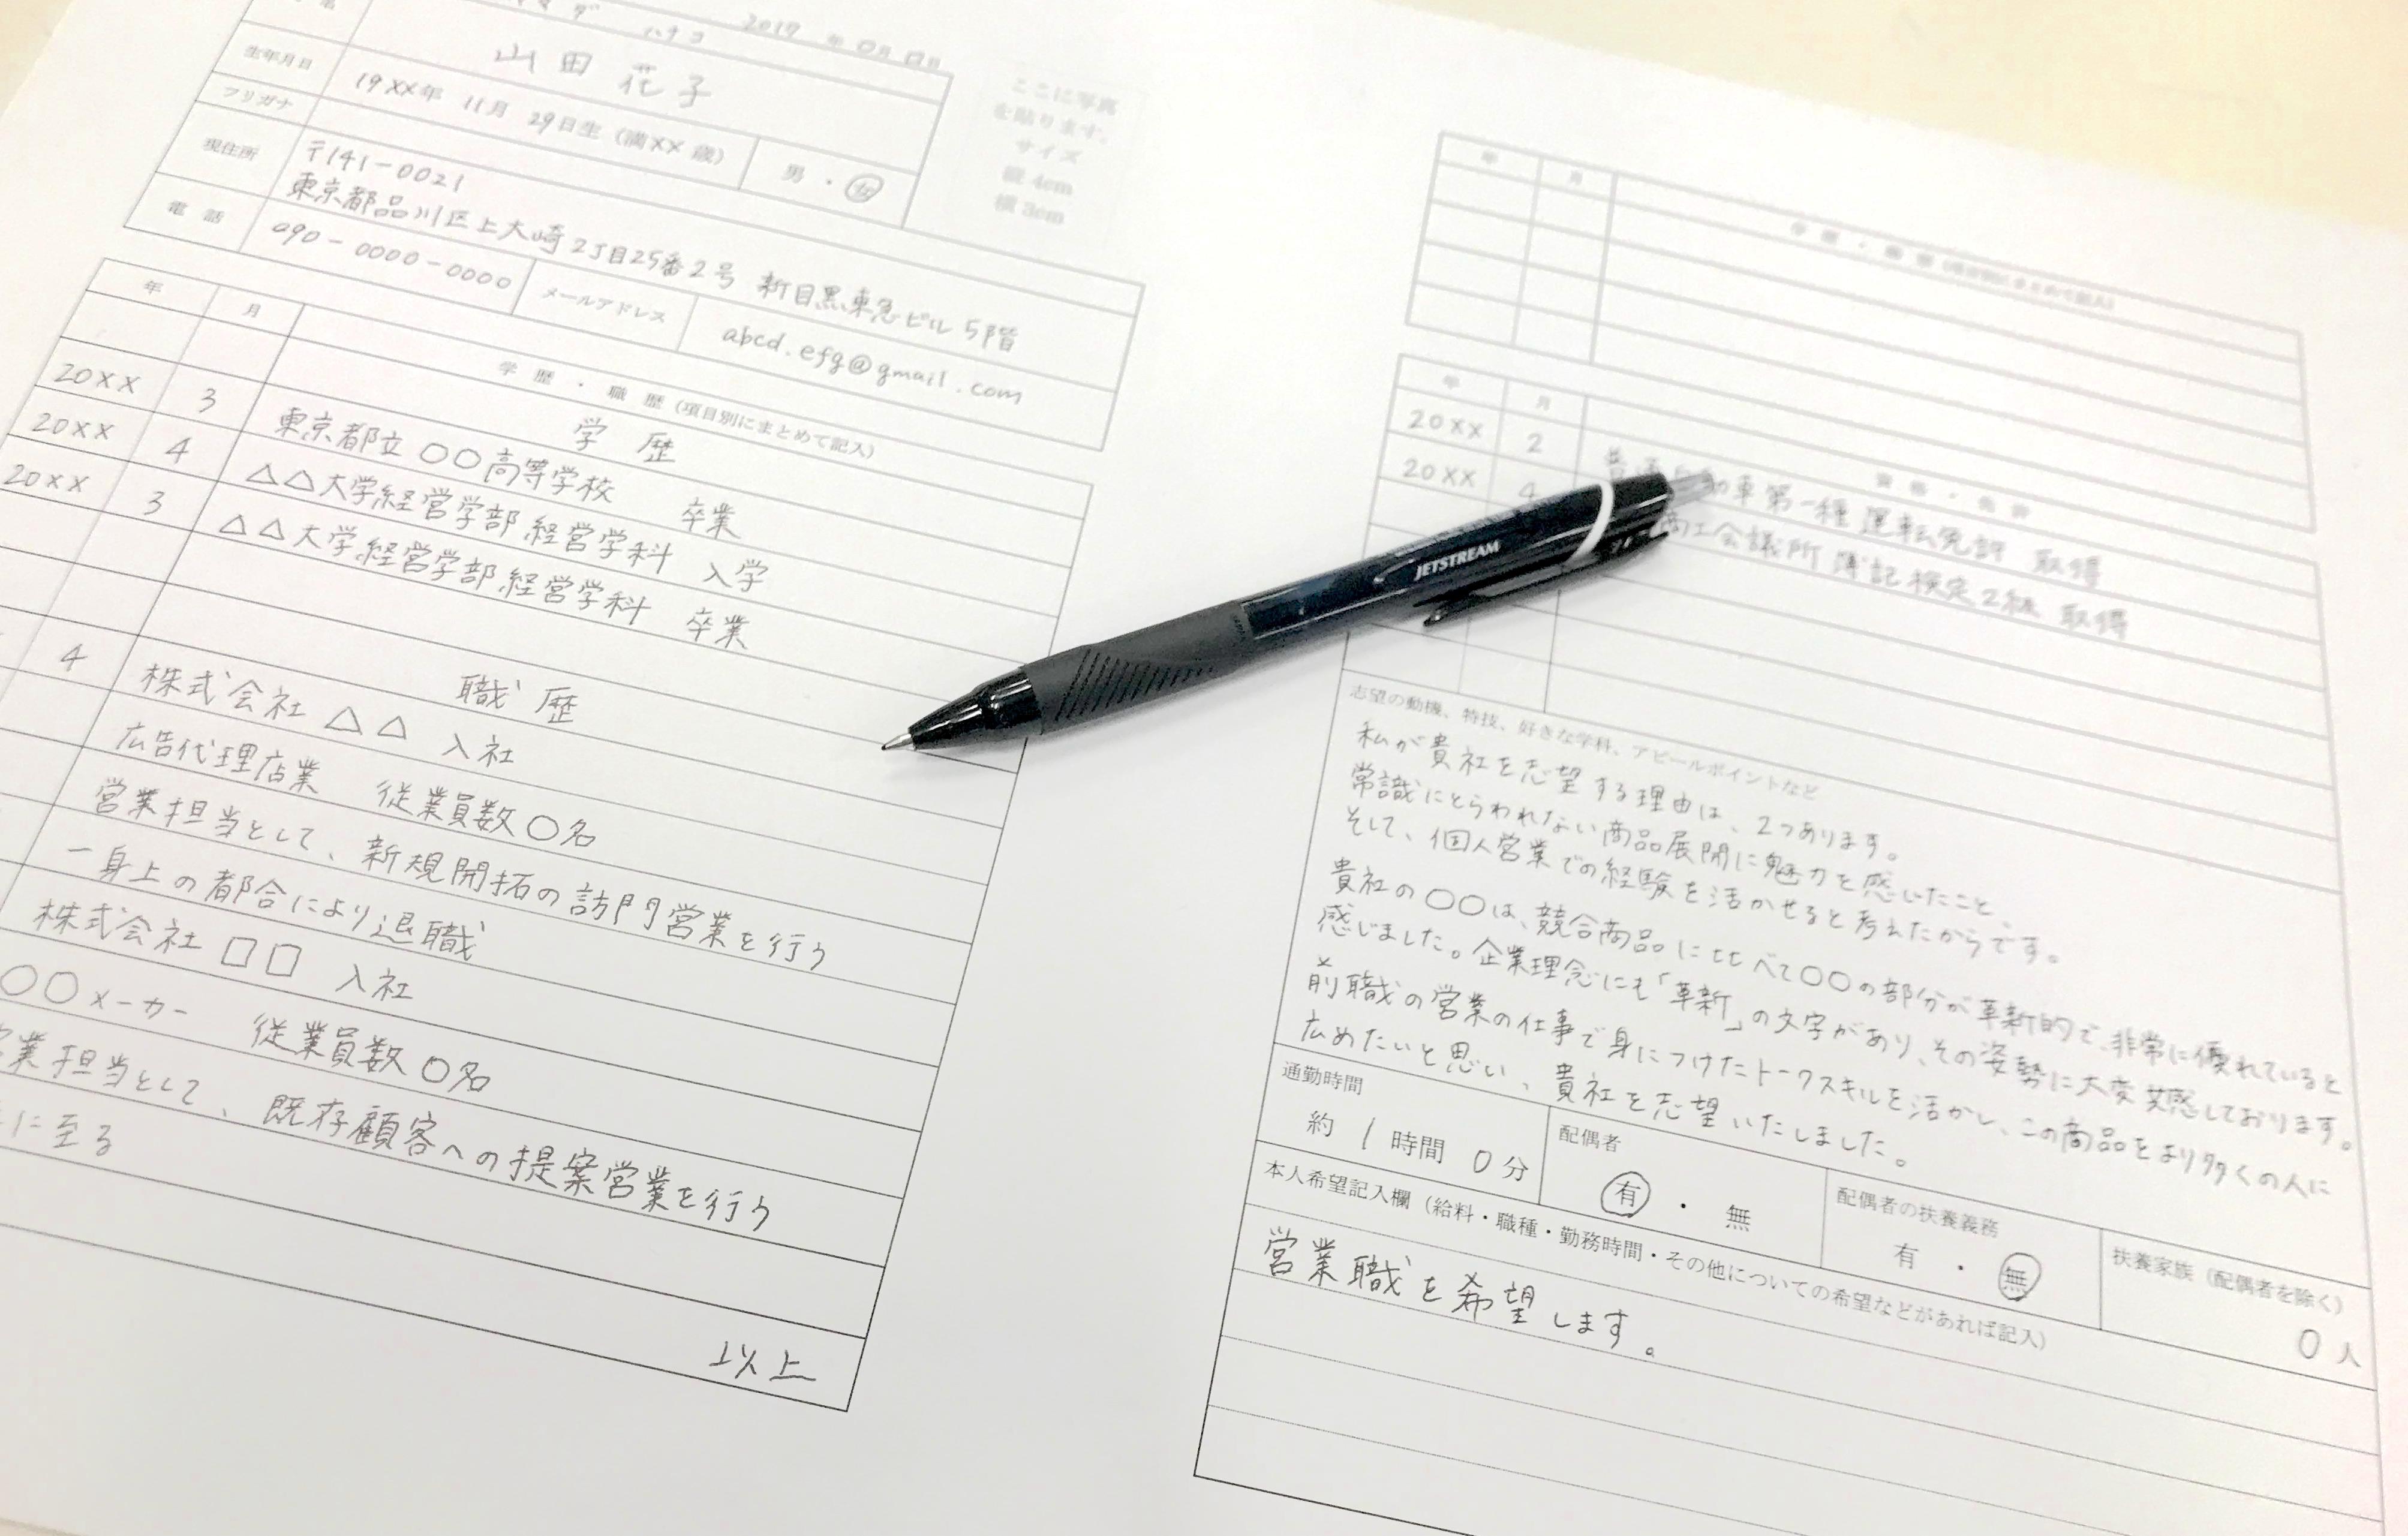 2017 年 〇月 〇日
ハナコ
山田 花子
生年月日
19XX年 11月 29日生 (満XX歳)
男・女
ここに写真
を貼ります。
サイズ
縦 4cm
横 3cm
フリガナ
現住所
〒141-0021
東京都品川区上大崎2丁目25番2号 新目黒東急ビル5階
電話
090-0000-0000
メールアドレス
abcd.efg@gmail.com
年 月 学歴・職歴(項目別にまとめて記入)
学歴
20XX 3 東京都立〇〇高等学校 卒業
20XX 4 △△大学経営学部経営学科 入学
20XX 3 △△大学経営学部経営学科 卒業
職歴
4 株式会社△△ 入社
広告代理店業 従業員数〇名
営業担当として、新規開拓の訪門営業を行う
一身上の都合により退職
株式会社□□ 入社
〇〇メーカー 従業員数〇名
業担当として、既存顧客への提案営業を行う
に至る
以上
年 月 学歴・職歴(項目別にまとめて記入)
年 月 資格・免許
20XX 2 動車第一種運転免許 取得
20XX 4 商工会議所 簿記検定2級 取得
JETSTREAM
志望の動機、特技、好きな学科、アピールポイントなど
私が貴社を志望する理由は、2つあります。
常識にとらわれない商品展開に魅力を感じたこと、
そして、個人営業での経験を活かせると考えたからです。
貴社の〇〇は、競合商品に比べて〇〇の部分が革新的で、非常に優れていると
感じました。企業理念にも「革新」の文字があり、その姿勢に大変共感しております。
前職の営業の仕事で身につけたトークスキルを活かし、この商品をより多くの人に
広めたいと思い、貴社を志望いたしました。
通勤時間
約 1 時間 0 分
配偶者
有・無
配偶者の扶養義務
有・無
扶養家族(配偶者を除く)
0 人
本人希望記入欄(給料・職種・勤務時間・その他についての希望などがあれば記入)
営業職を希望します。